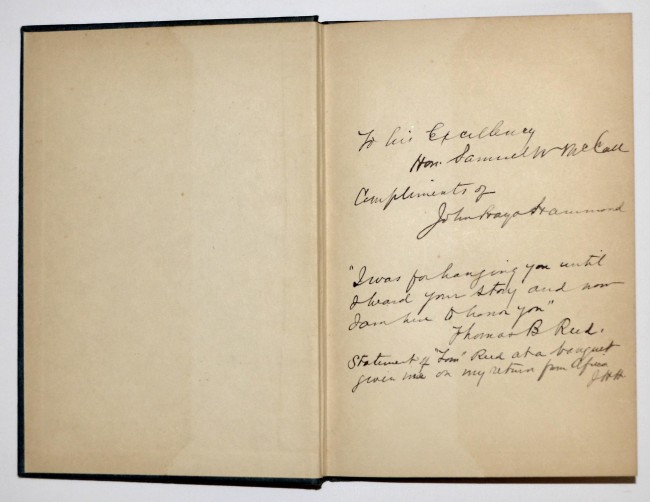 To his Excellency
Hon. Samuel W McCall
Compliments of
John Hays Hammond
"I was for hanging you until
I heard your story and now
I am here to honor you"
Thomas B Reed.
Statement of "Tom" Reed at a banquet
given me on my return from Africa
JHH